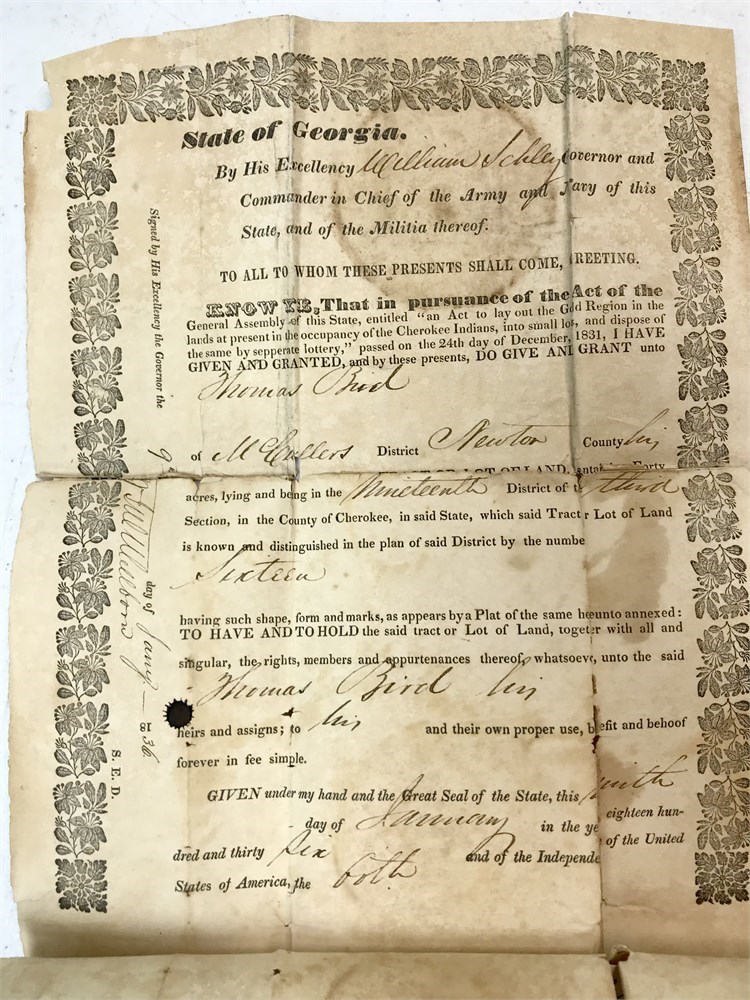 State of Georgia.
By His Excellency William Schley Governor and
Commander in Chief of the Army and Navy of this
State, and of the Militia thereof.
TO ALL TO WHOM THESE PRESENTS SHALL COME, REETING.
KNOW YE, That in pursuance of the Act of the
General Assembly of this State, entitled "an Act to lay out the Gold Region in the
lands at present in the occupancy of the Cherokee Indians, into small lot, and dispose of
the same by sepperate lottery," passed on the 24th day of December, 1831, I HAVE
GIVEN AND GRANTED, and by these presents, DO GIVE AND GRANT unto
Thomas Bird
of McCullers District Newton County his
OR LOT OF LAND, Forty
acres, lying and being in the Nineteenth District of t third
Section, in the County of Cherokee, in said State, which said Tract r Lot of Land
is known and distinguished in the plan of said District by the numbe
Sixteen
having such shape, form and marks, as appears by a Plat of the same hereunto annexed:
TO HAVE AND TO HOLD the said tract or Lot of Land, together with all and
singular, the rights, members and appurtenances thereof, whatsoeve, unto the said
Thomas Bird his
heirs and assigns; to his and their own proper use, benefit and behoof
forever in fee simple.
GIVEN under my hand and the Great Seal of the State, this ninth
day of January in the ye eighteen hun-
dred and thirty six and of the Independe of the United
States of America, the 60th
Signed by His Excellency the Governor the
9 day of Jany 1836
Wellborn
S. E. D.